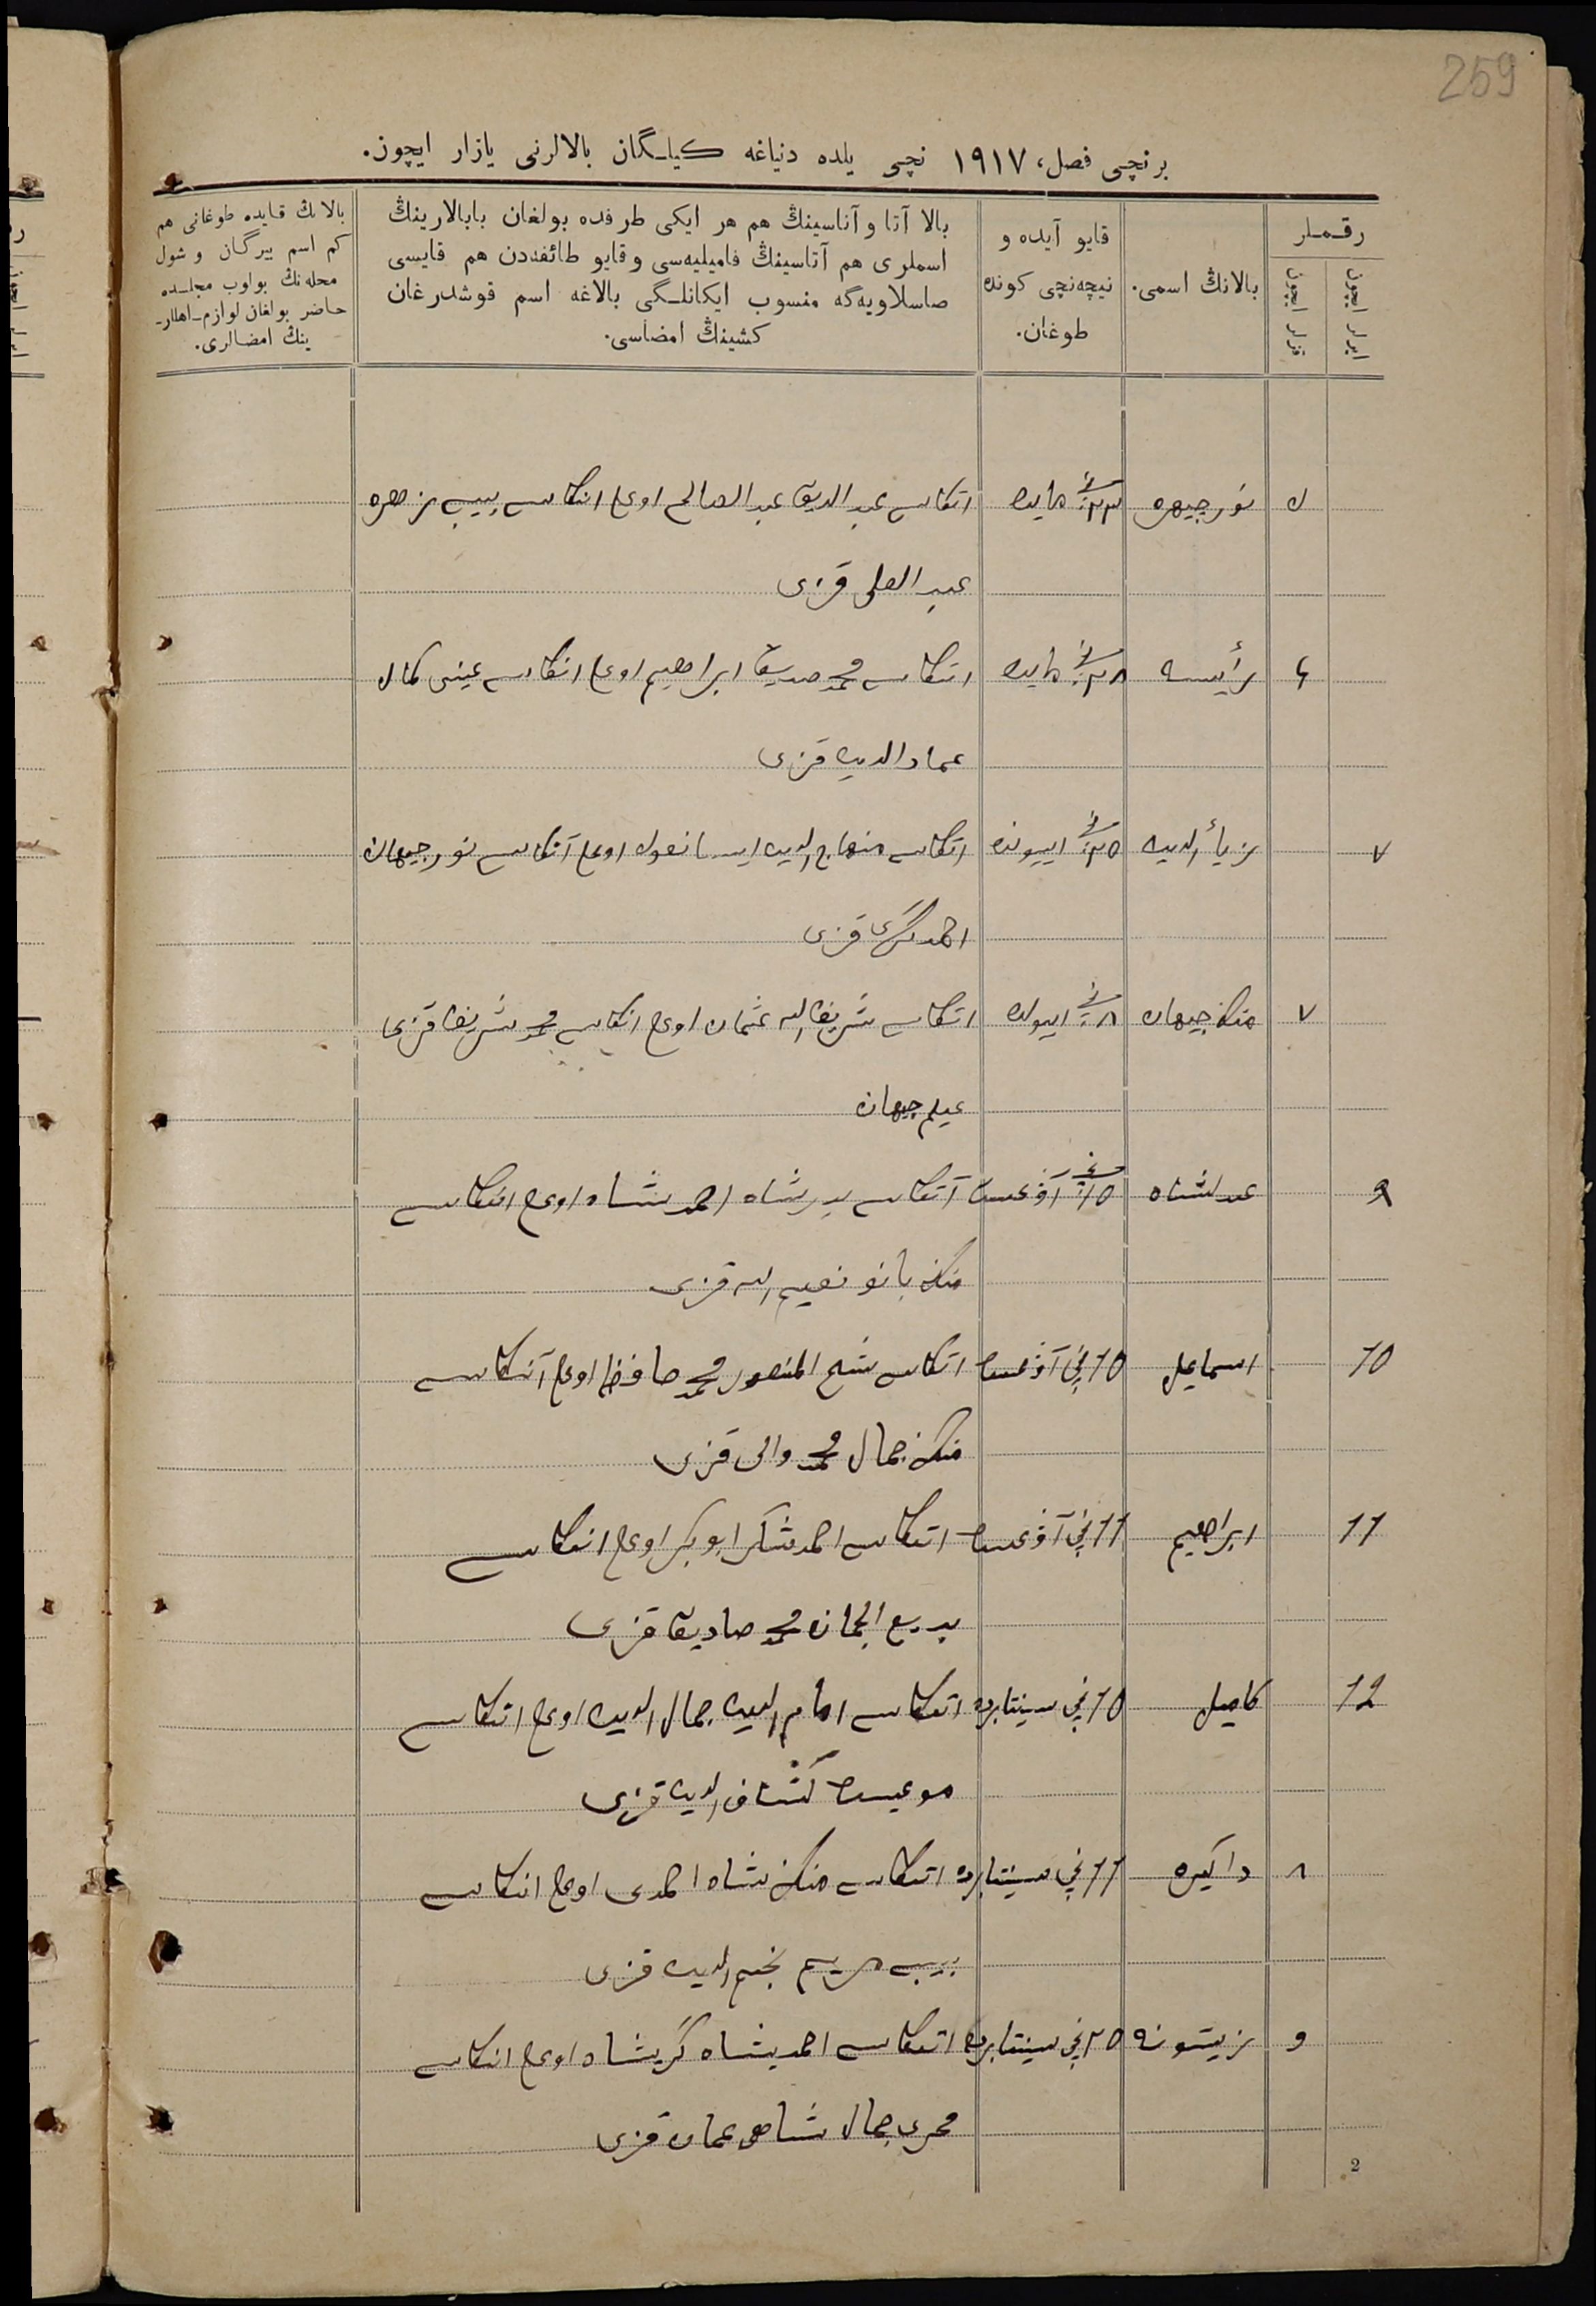 259
برنچی فصل، ١٩١٧ نچی یلده دنیاغه کیلگان بالالرنی یازار ایچون.
رقملر
ایرلر ایچون
قزلر ایچون
بالانڭ اسمی.
قایو آیده و
نیچه‌نچی کونده
طوغان.
بالا آتا و آناسینڭ هم هر ایکی طرفده بولغان بابالارینڭ
اسملری هم آتاسینڭ فامیلیه‌سی و قایو طائفه‌دن هم قایسی
صاسلاویه‌گه منسوب ایکانلگی بالاغه اسم قوشدرغان
کشینڭ امضاسی.
بالانڭ قایده طوغانی هم
کم اسم بیرگان و شول
محله‌نڭ بولوب مجلسده
حاضر بولغان لوازم اهللر-
ینڭ امضالری.
٥ نورجیهره ٢٣نچی مایده اتکاسی عبد الدیق عبد الصالح اوغلی انکاسی بیبی زهره
عبد العلی قزی
۶ رأیسه ٢٨نچی مایده اتکاسی محمد صدیق ابراهیم اوغلی انکاسی عینی کمال
عماد الدین قزی
٧ زیأ الدین ٢٥نچی اییونده اتکاسی منهاج الدین اوغلی آنکاسی نورجیهان
احمدگری قزی
٧ منکجیهان ٨نچی اییولده اتکاسی شریف الله عثمان اوغلی انکاسی محمد شریف قزی
علیم جیهان
٩ عدلشاه ١٥نچی آوغست آتکاسی بدرشاه احمدشاه اوغلی انکاسی
منک بانو نعیم الله قزی
10 اسماعیل 10نچی آوغست اتکاسی شیخ المنصور محمد حافظ اوغلی آنکاسی
منک جمال محمد والی قزی
11 ابراهیم 11نچی آوغست اتکاسی احمدشکر ابوبکر اوغلی انکاسی
بدیع الجمان محمد صادیق قزی
12 کامیل 10نچی سینتابرده اتکاسی امام الدین جمال الدین اوغلی انکاسی
کشاف الدین قزی
٨ ذاکیره 11نچی سینتابرده اتکاسی منک شاه احمدی اوغلی انکاسی
بیبی مریم نجم الدین قزی
٩ زیتونه ٢٥نچی سینتابرده اتکاسی احمدیشاه گریشاه اوغلی انکاسی
محری جمال شاهی عمان قزی
2